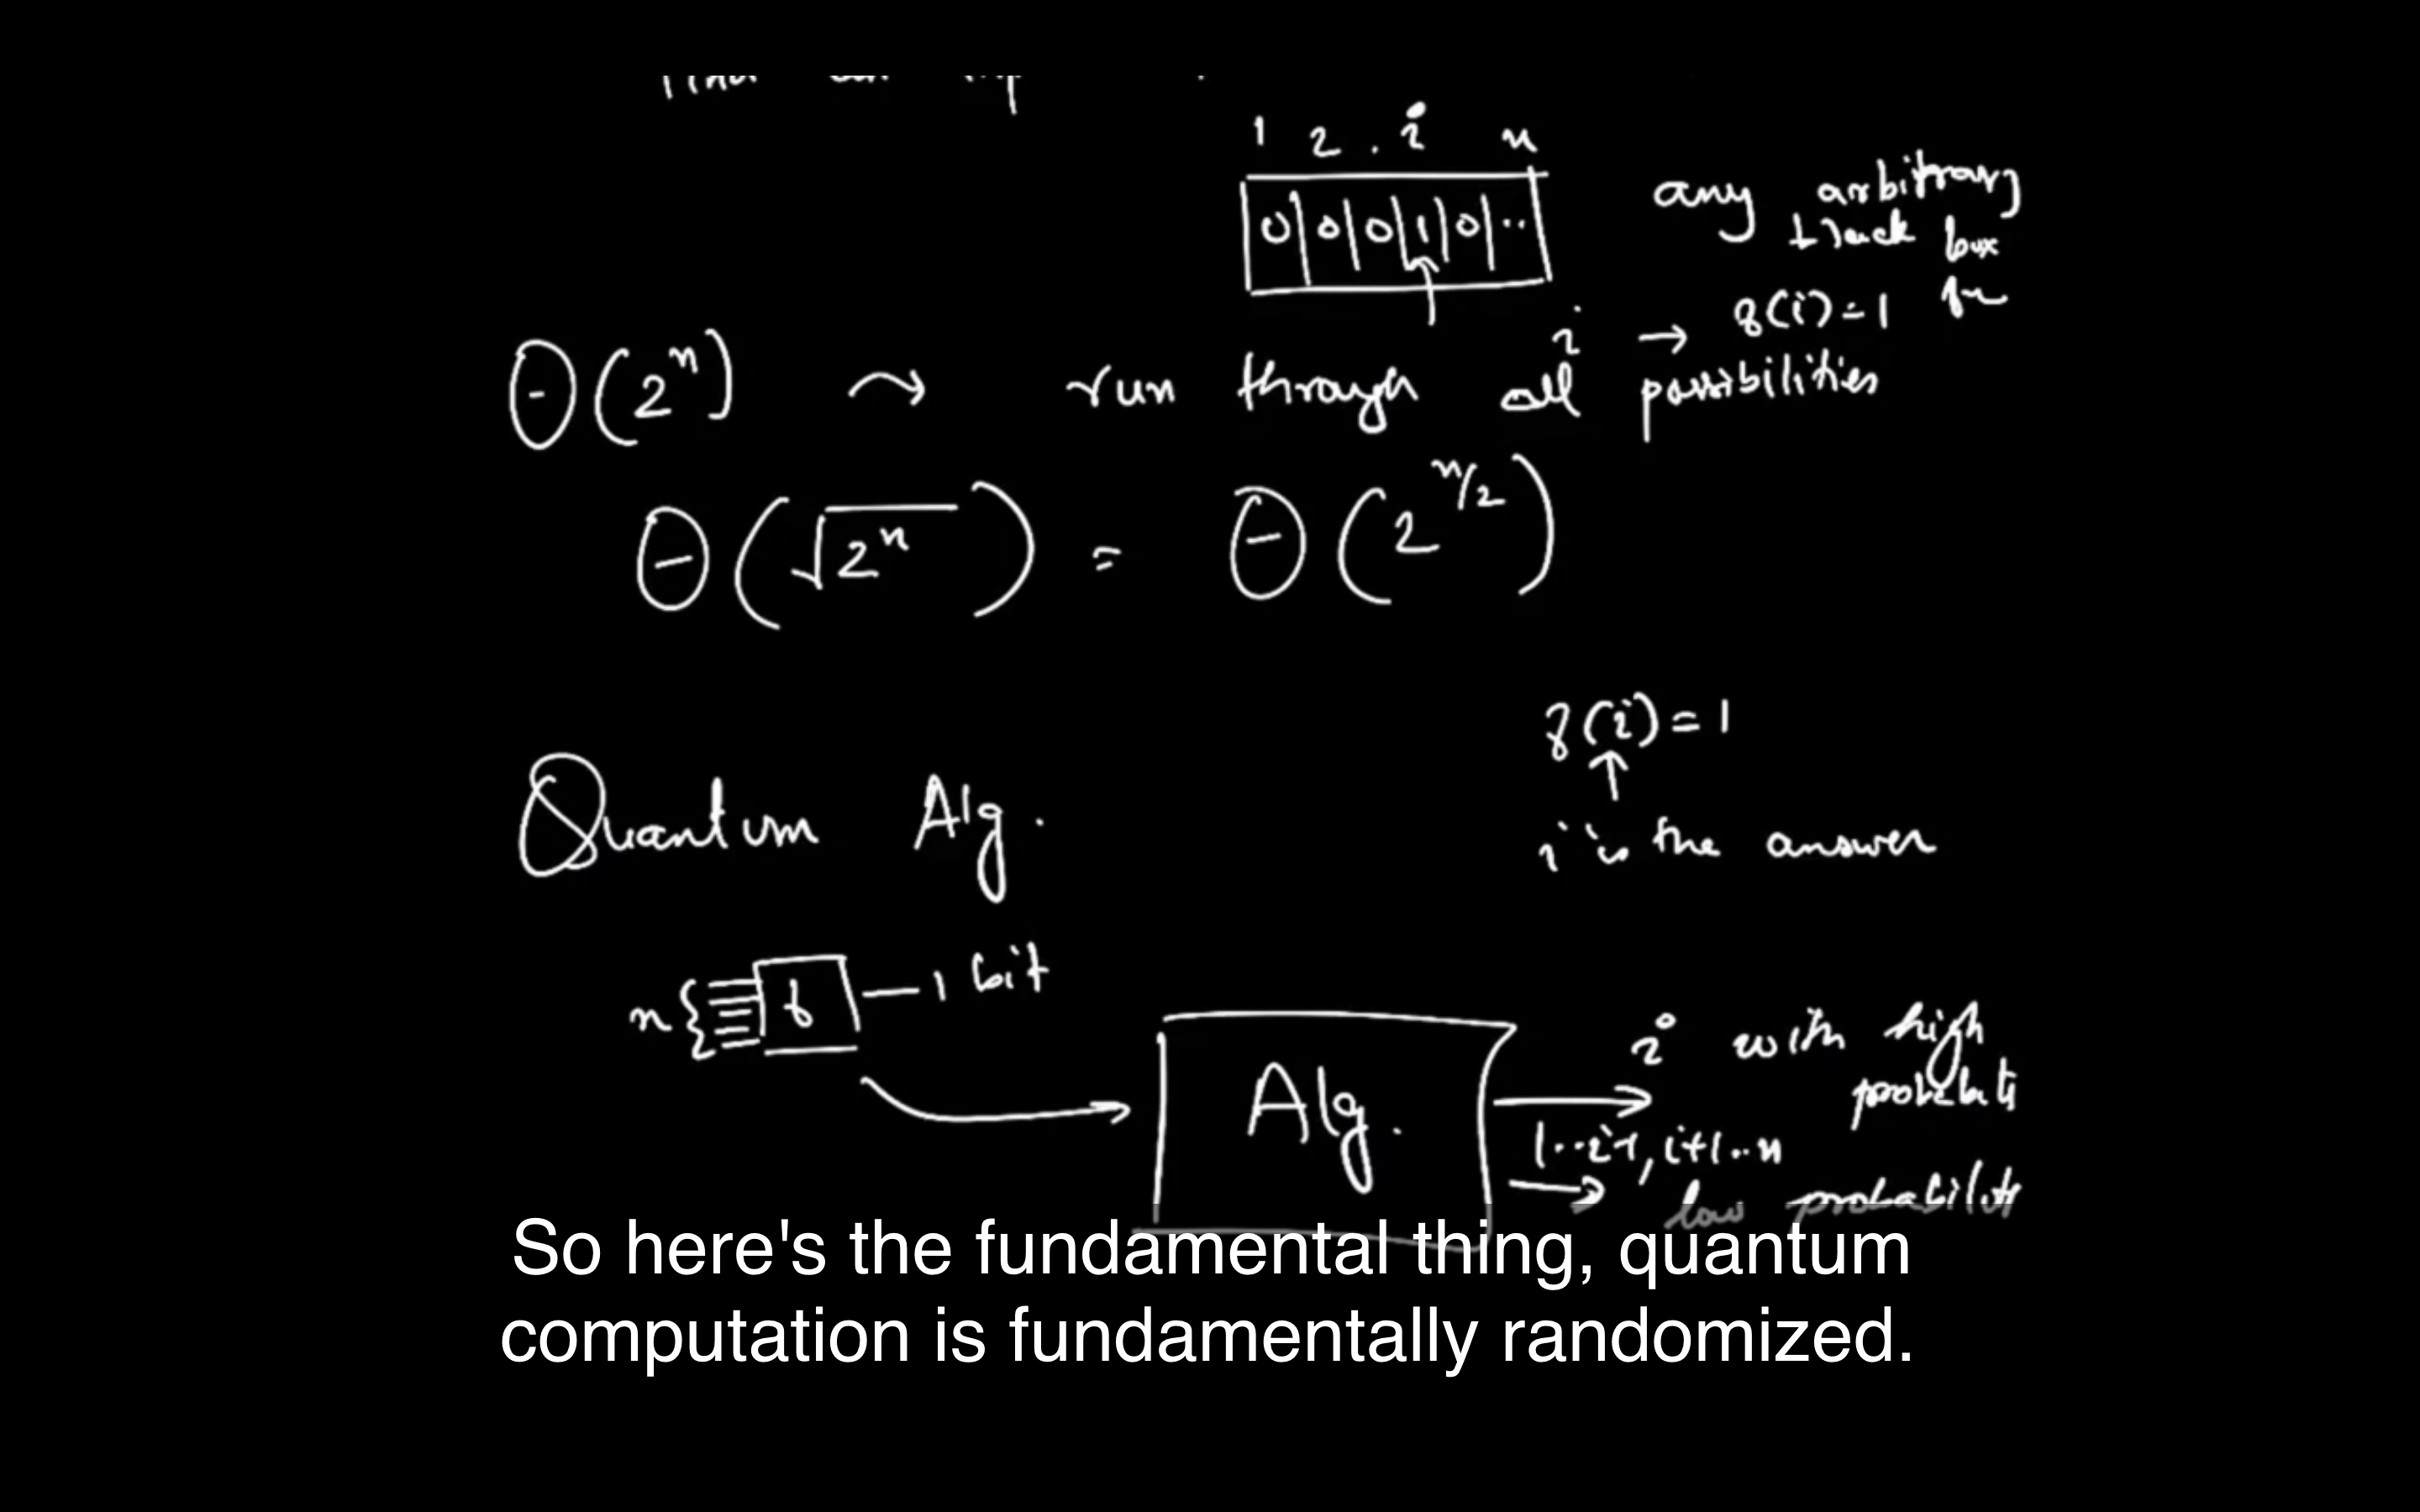 1 2 . i n
0 0 0 1 0 ..
any arbitrary
black box
f(i)=1 for
Θ(2ⁿ) ⤳ run through all i → possibilities
Θ(√2ⁿ) = Θ(2^(n/2))
f(i)=1
i is the answer
Quantum Alg.
n { f — 1 bit
Alg.
i with high
1..i-1, i+1..n
low probability
So here's the fundamental thing, quantum
computation is fundamentally randomized.